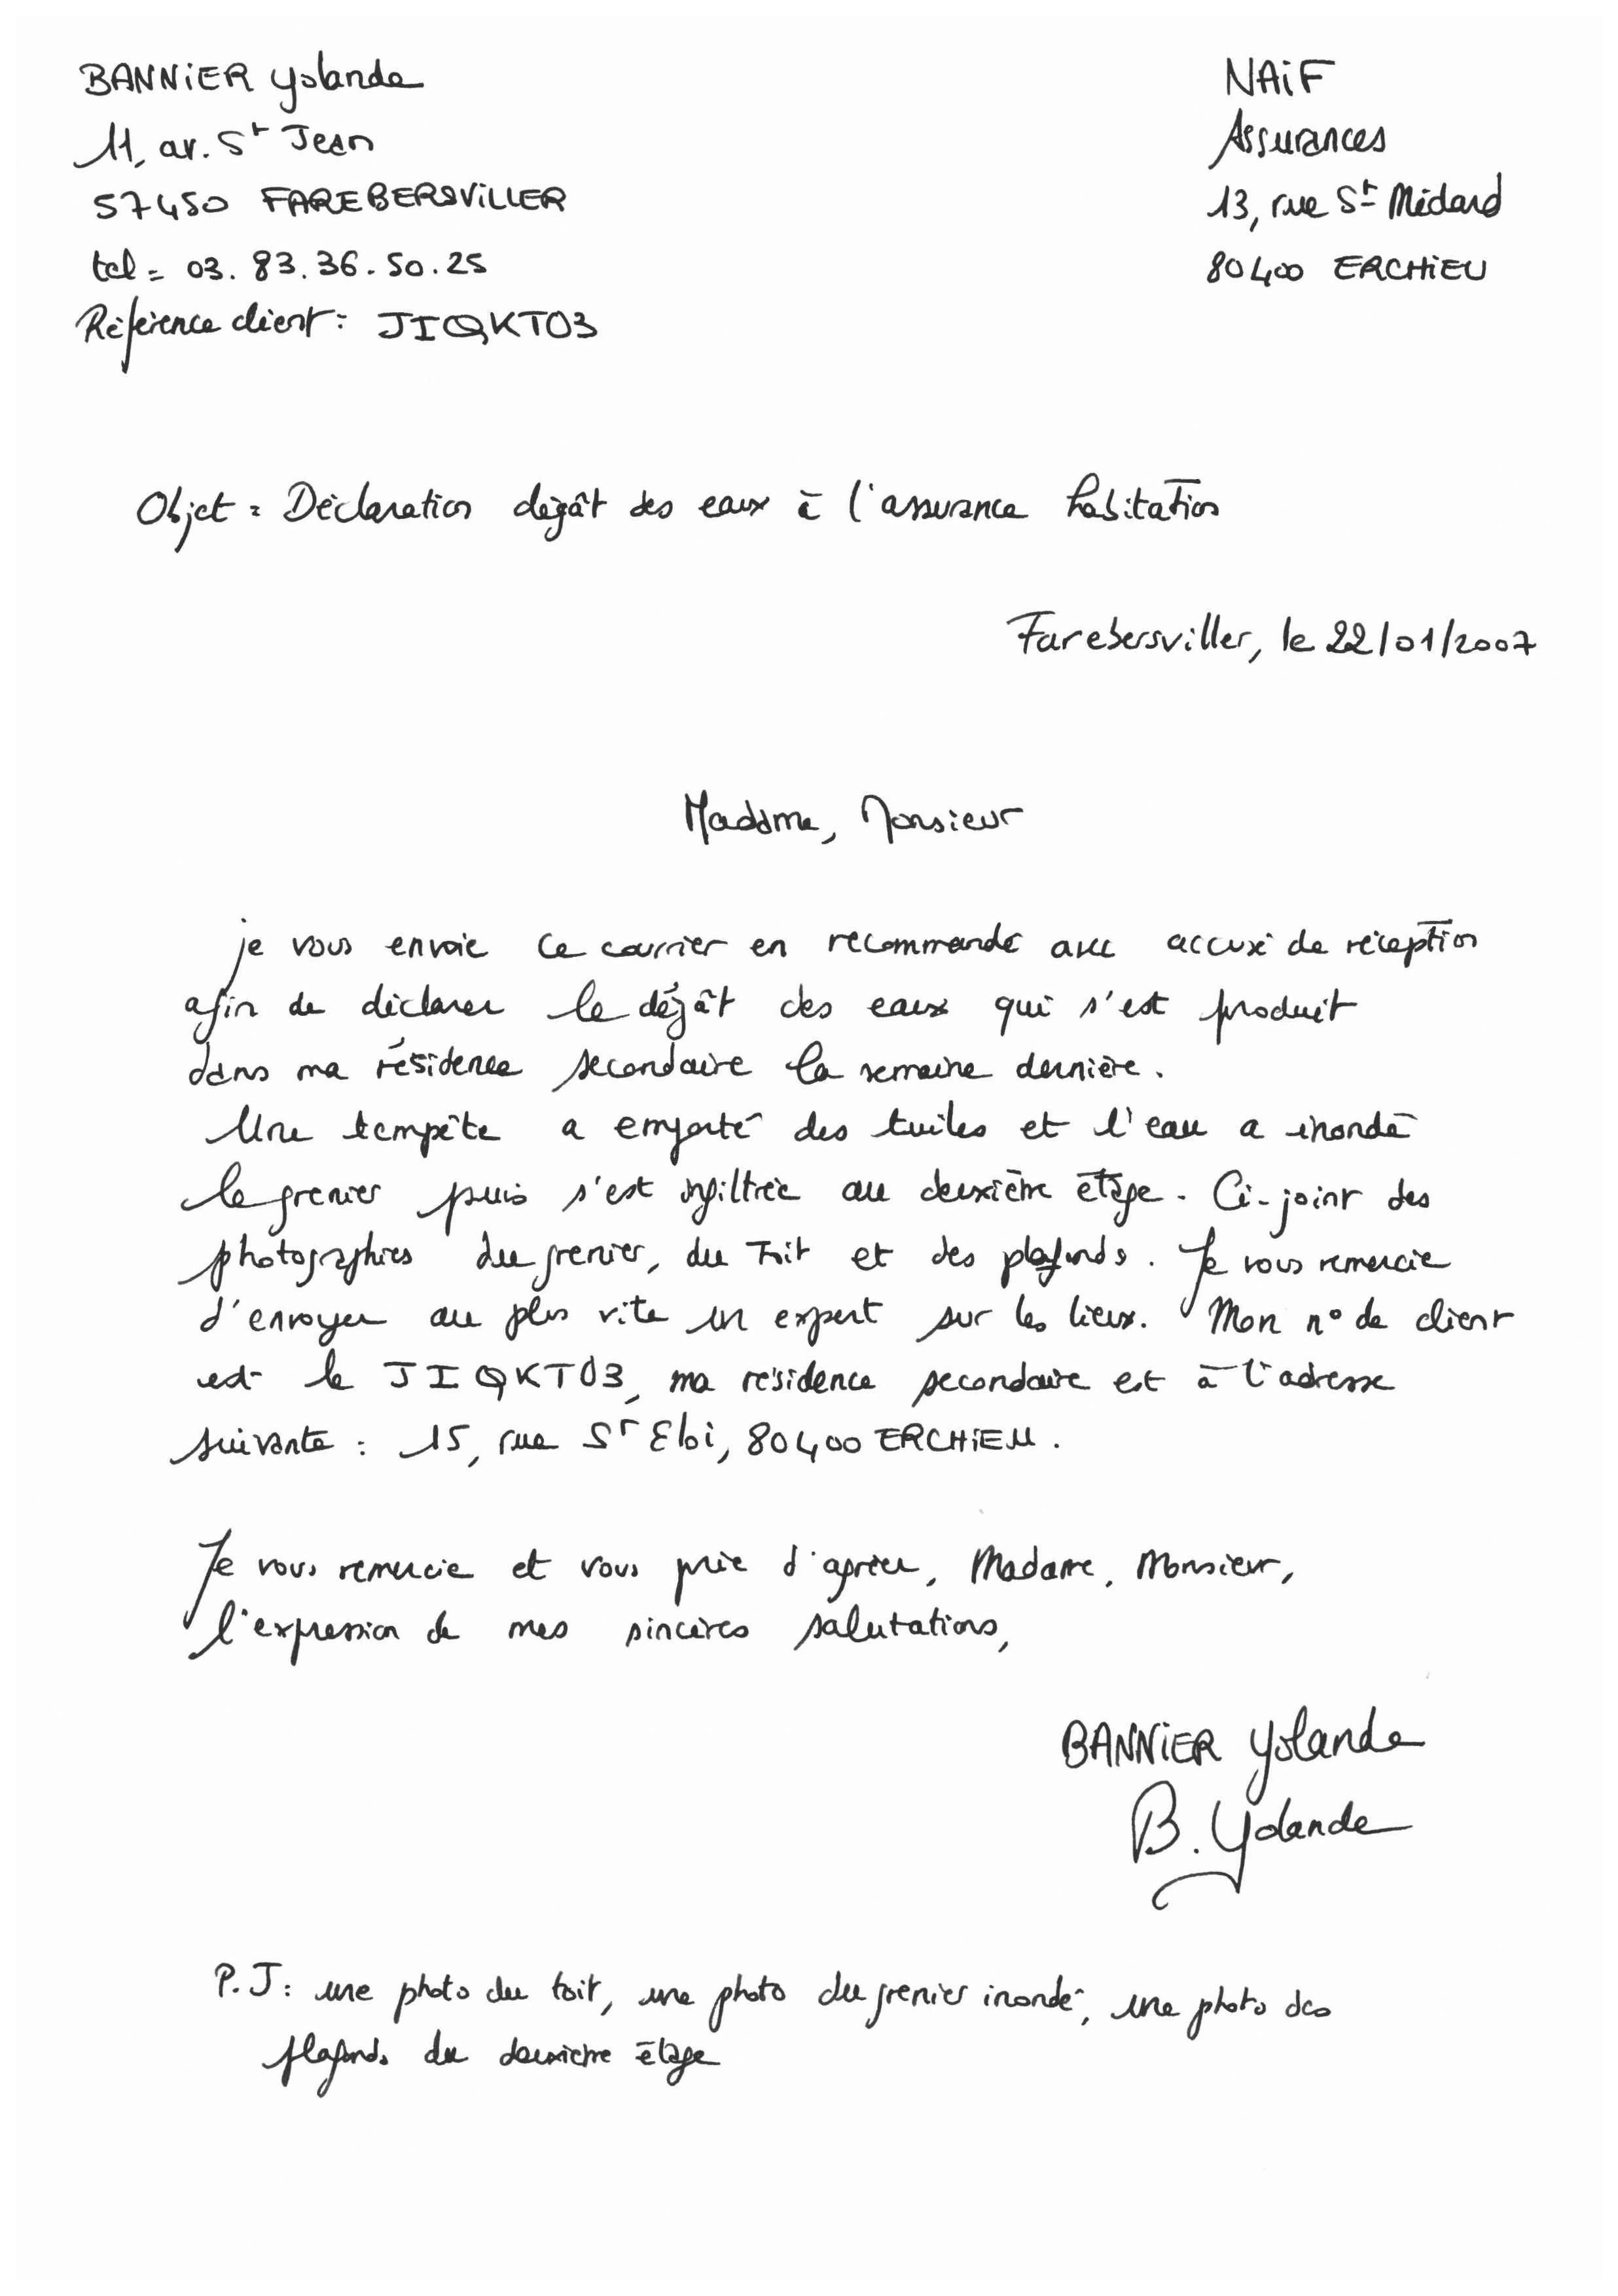 BANNIER Yolande
11, av. St Jean
57450 FAREBERSVILLER
tel = 03.83.36.50.25
Référence client : JIQKT03
NAIF
Assurances
13, rue St Médard
80400 ERCHIEU
Objet : Déclaration dégât des eaux à l'assurance habitation
Farebersviller, le 22/01/2007
Madame, Monsieur
je vous envoie ce courrier en recommandé avec accusé de réception
afin de déclarer le dégât des eaux qui s'est produit
dans ma résidence secondaire la semaine dernière.
Une tempête a emporté des tuiles et l'eau a inondé
le grenier puis s'est infiltrée au deuxième étage. Ci-joint des
photographies du grenier, du toit et des plafonds. Je vous remercie
d'envoyer au plus vite un expert sur les lieux. Mon n° de client
est le JIQKT03, ma résidence secondaire est à l'adresse
suivante : 15, rue St Eloi, 80400 ERCHIEU.
Je vous remercie et vous prie d'agréer, Madame, Monsieur,
l'expression de mes sincères salutations,
BANNIER Yolande
B. Yolande
P.J : une photo du toit, une photo du grenier inondé, une photo des
plafonds du deuxième étage